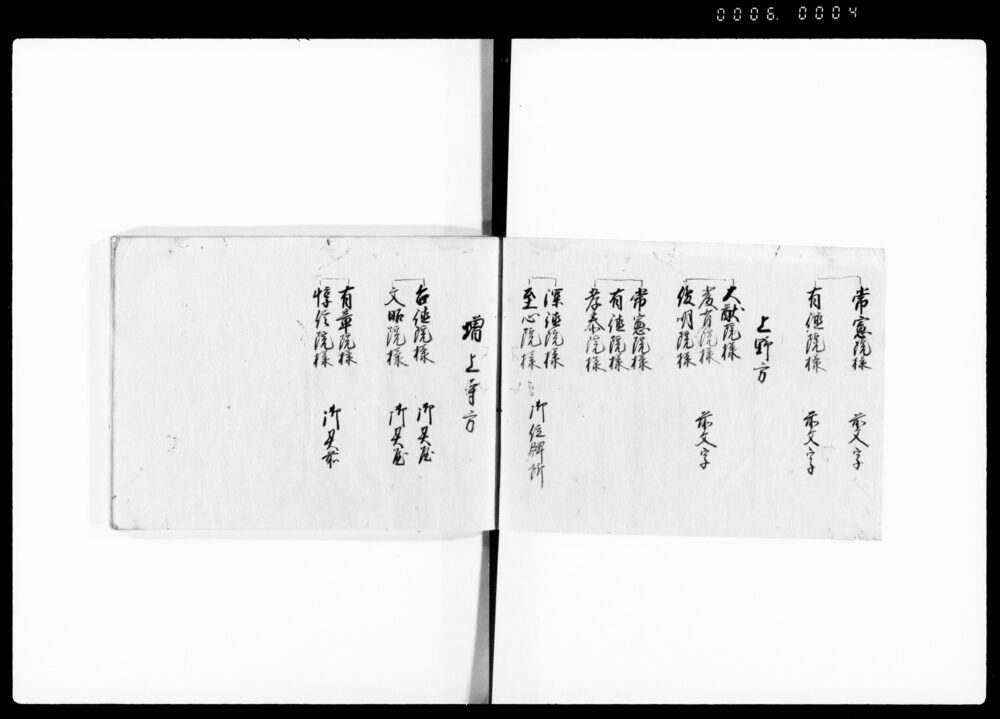 0006. 0004
常憲院様 前文字
有徳院様 前文字
上野方
大猷院様
厳有院様 前文字
俊明院様
常憲院様
有徳院様
孝恭院様
深徳院様
至心院様 御位牌所
増上寺方
台徳院様 御具屋
文昭院様 御具屋
有章院様
惇信院様 御具